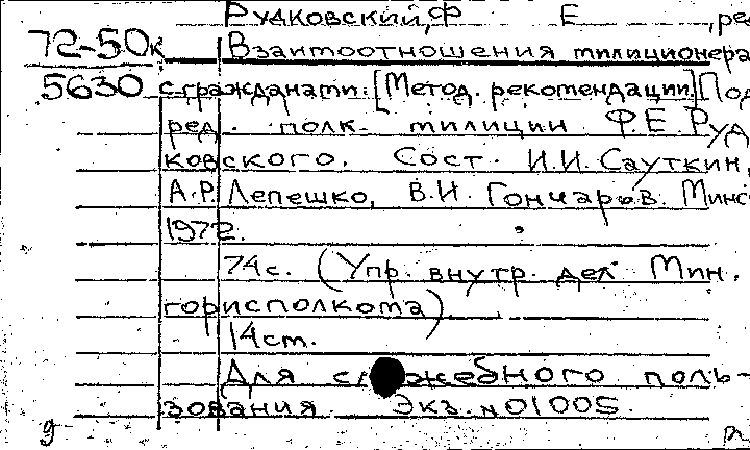 Рудковский, Ф Е , ре
72-50к Взаимоотношения милиционера
5630 с гражданами. [Метод. рекомендации] Под
ред. полк. милиции Ф.Е. Руд
ковского. Сост. И.И. Сауткин,
А.Р. Лепешко, В.И. Гончаров. Минс
1972.
74с. (Упр. внутр. дел Мин.
горисполкома).
14см.
Для служебного поль-
зования. Экз. №01005